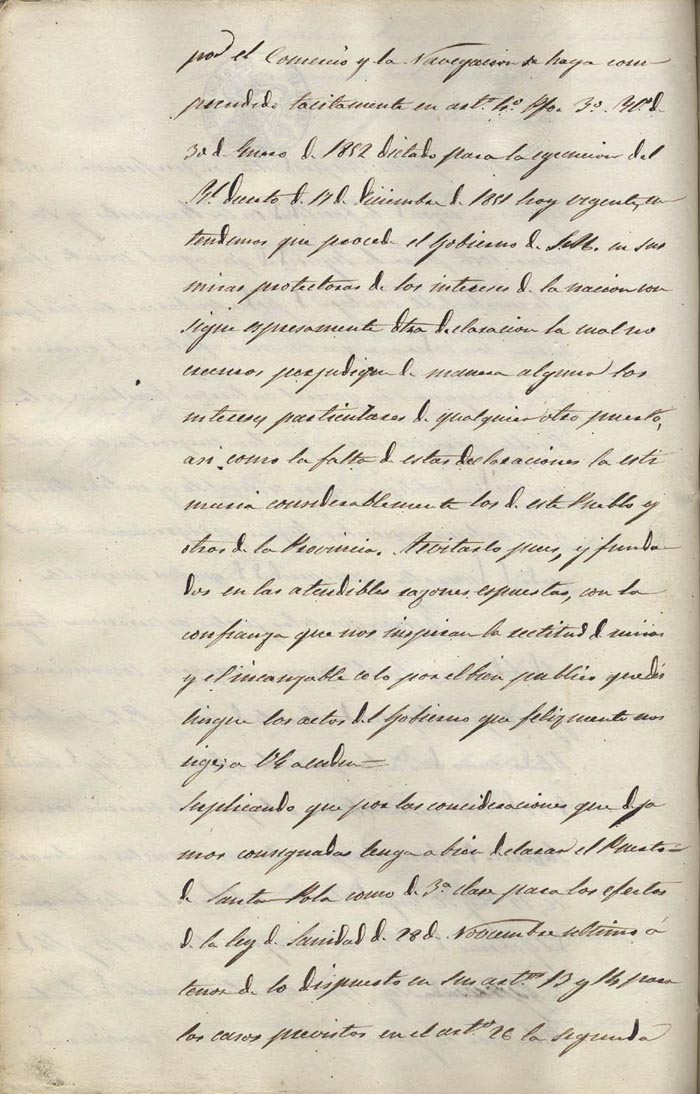 por el Comercio y la Navegacion se haya com-
prendido tacitamente en art.º 4.º 3.º d.
30 d. Enero d. 1852 dictado para la egecucion del
R.l decreto d. 17 d. diciembre d. 1851 hoy vigente, en
tendemos que procede el Gobierno de S.M. en sus
miras protectoras de los intereses de la nacion con
signe espresamente otra declaracion la cual no
creemos perjudique d. manera alguna los
intereses particulares d. qualquier otro puerto,
asi como la falta de estas declaraciones lasti
maria considerablemente los d. este Pueblo y
otros de la Provincia. A evitarlo pues, y funda-
dos en las atendibles razones espuestas, con la
confianza que nos inspiran la rectitud d. miras
y el incansable celo por el bien publico que dis
tingue los actos del Gobierno que felizmente nos
rige, a V.E. acuden=
Suplicando que por las concideraciones que deja
mos consignadas tenga a bien declarar el Puerto
d. Santa Pola como d. 3.ª clase para los efectos
d. la ley d. Sanidad d. 28 d. Noviembre ultimo á
tenor de lo dispuesto en sus art.os 13 y 14 para
los casos previstos en el art.º 26 la segunda